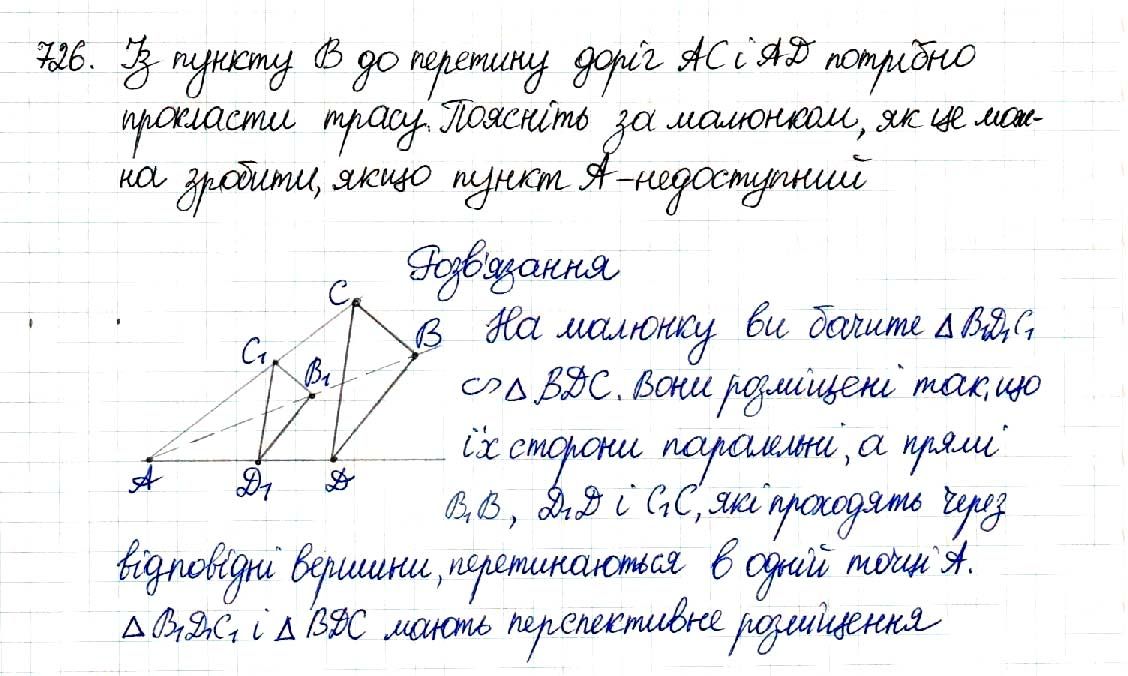 726. Із пункту B до перетину доріг AC і AD потрібно
прокласти трасу. Поясніть за малюнком, як це мож-
на зробити, якщо пункт A - недоступний
Розв'язання
C
B
C₁
B₁
A
D₁
D
На малюнку ви бачите △ B₁D₁C₁
∽ △ BDC. Вони розміщені так, що
їх сторони паралельні, а прямі
B₁B, D₁D і C₁C, які проходять через
відповідні вершини, перетинаються в одній точці A.
△ B₁D₁C₁ і △ BDC мають перспективне розміщення